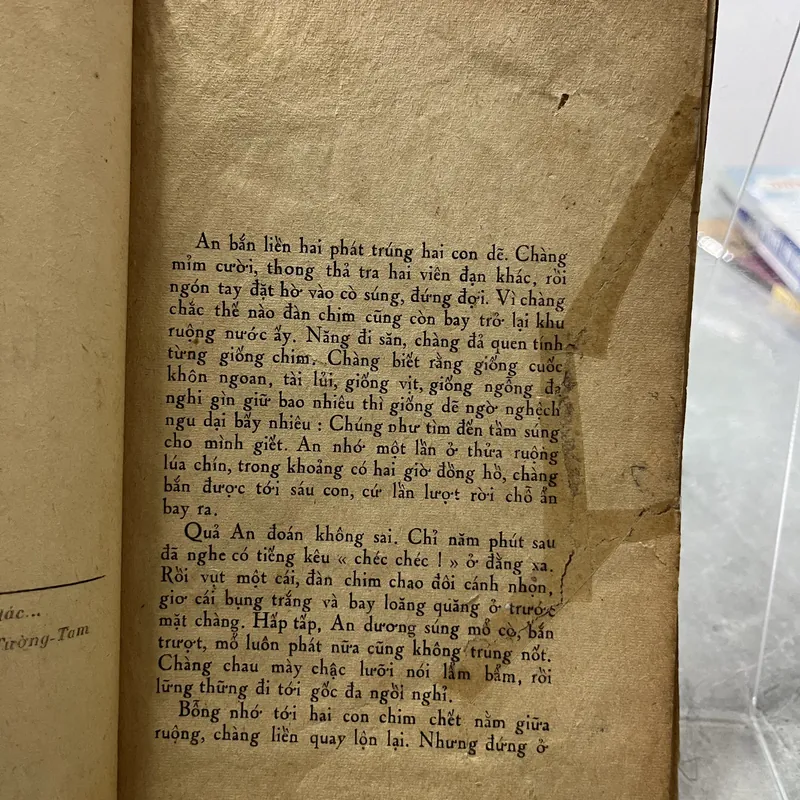 An bắn liền hai phát trúng hai con dẽ. Chàng
mỉm cười, thong thả tra hai viên đạn khác, rồi
ngón tay đặt hờ vào cò súng, đứng đợi. Vì chàng
chắc thế nào đàn chim cũng còn bay trở lại khu
ruộng nước ấy. Năng đi săn, chàng đả quen tính
từng giống chim. Chàng biết rằng giống cuốc
khôn ngoan, tài lủi, giống vịt, giống ngỗng đa
nghi gìn giữ bao nhiêu thì giống dẽ ngờ nghệch
ngu dại bấy nhiêu : Chúng như tìm đến tầm súng
cho mình giết. An nhớ một lần ở thửa ruộng
lúa chín, trong khoảng có hai giờ đồng hồ, chàng
bắn được tới sáu con, cứ lần lượt rời chỗ ẩn
bay ra.
Quả An đoán không sai. Chỉ năm phút sau
đã nghe có tiếng kêu « chéc chéc ! » ở đằng xa.
Rồi vụt một cái, đàn chim chao đôi cánh nhọn,
giơ cái bụng trắng và bay loăng quăng ở trước
mặt chàng. Hấp tấp, An dương súng mổ cò, bắn
trượt, mổ luôn phát nữa cũng không trúng nốt.
Chàng chau mày chậc lưỡi nói lẩm bẩm, rồi
lững thững đi tới gốc đa ngồi nghỉ.
Bỗng nhớ tới hai con chim chết nằm giữa
ruộng, chàng liền quay lộn lại. Nhưng đứng ở
tác...
Tường-Tam